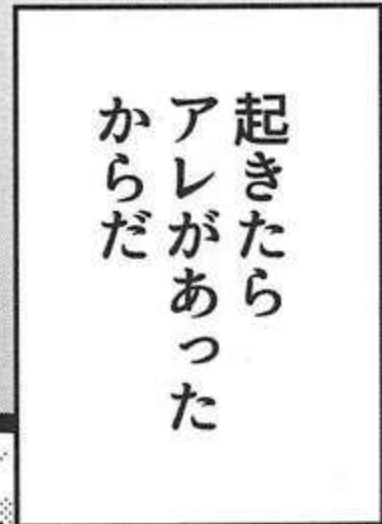 起きたら
アレがあった
からだ